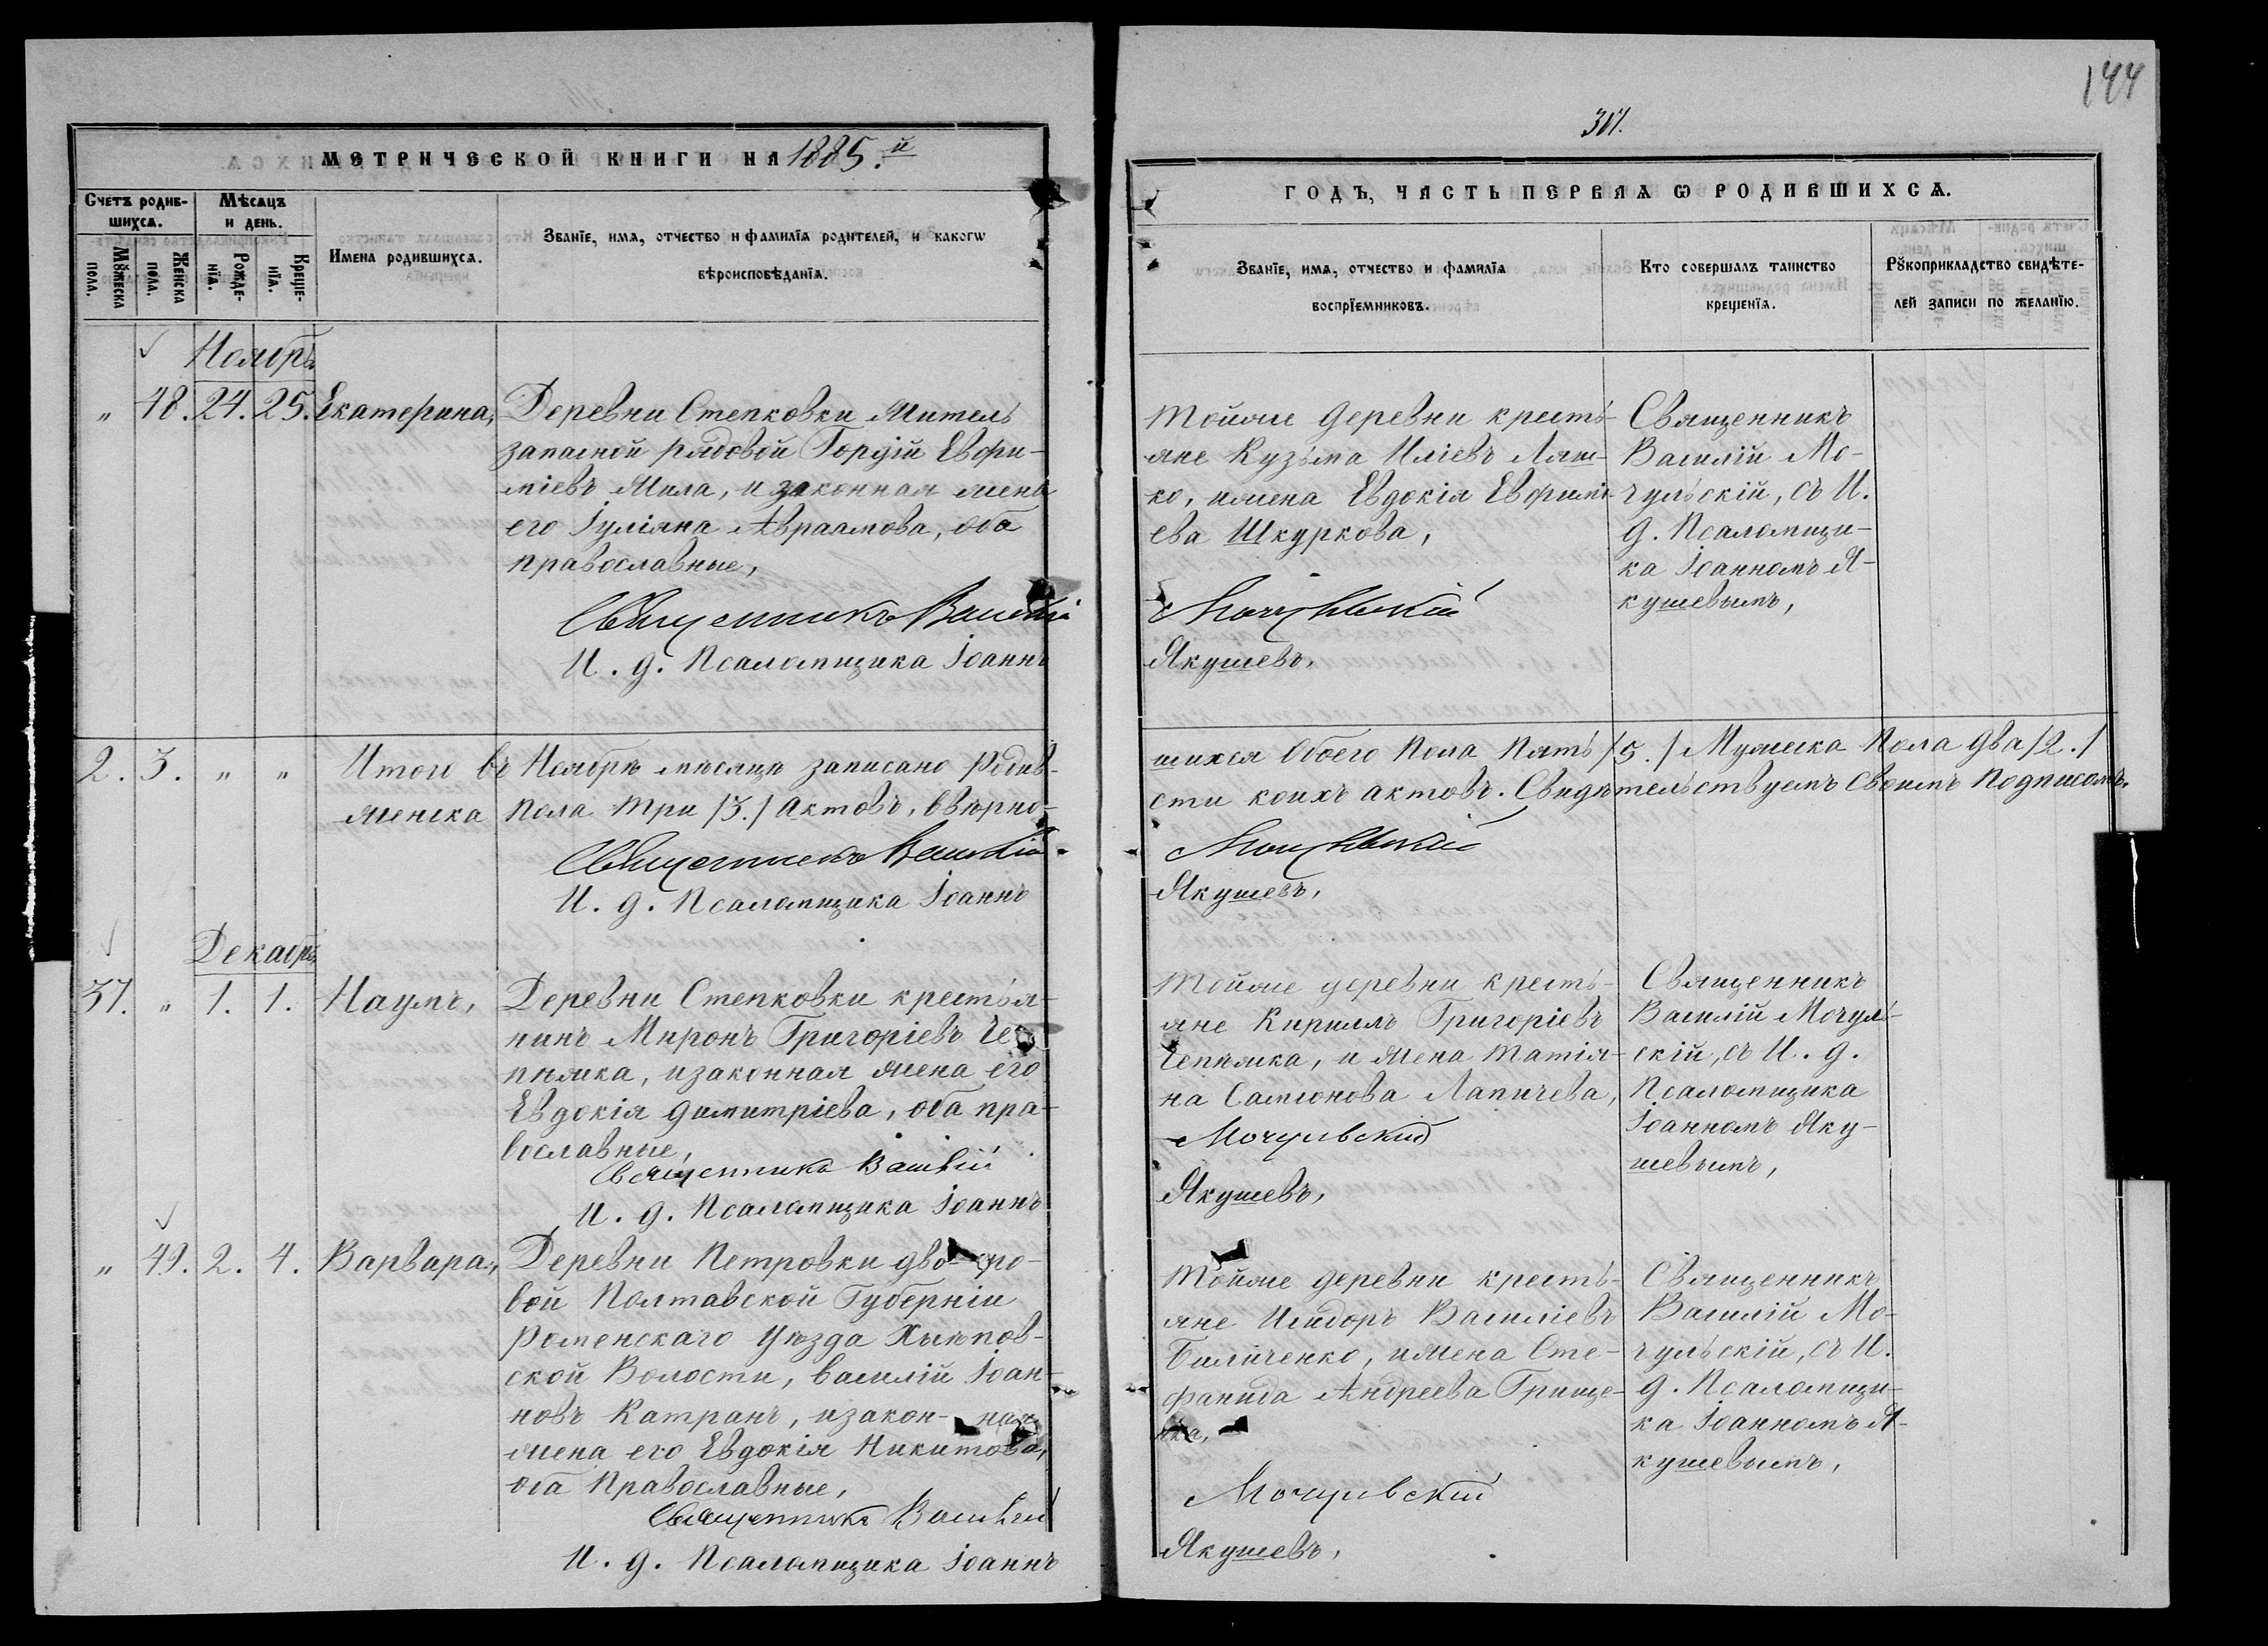 144
307.
МЕТРИЧЕСКОЙ КНИГИ НА 1885.й
ГОДЪ, ЧАСТЬ ПЕРВАѦ Ѡ РОДИВШИХСѦ.
Счетъ родив-
шихсѧ.
Мѣсѧцъ
и день.
Мꙋжеска
пола.
Женска
пола.
Рожде-
нїѧ.
Креще-
нїѧ.
Имена родившихсѧ.
Званїе, имѧ, отчество и фамилїѧ родителей, и какогѡ
вѣроисповѣданїѧ.
Званїе, имѧ, отчество и фамилїѧ
воспрїемниковъ.
Кто совершалъ таинство
крещенїѧ.
Рꙋкоприкладство свидѣте-
лей записи по желанїю.
Ноябрь
" 48. 24. 25. Екатерина,
Деревни Степковки житель
запасной рядовой Гордій Евфи-
міевъ Мила, и законная жена
его Іуліяна Авраамова, оба
православные,
Священникъ Василій
И. д. Псаломщика Іоаннъ
Тойже деревни кресть-
яне Кузьма Иліевъ Ляш-
ко, ижена Евдокія Евфимі-
ева Шкуркова,
Мочульскій
Якушевъ,
Священникъ
Василій Мо-
чульскій, съ И.
д. Псаломщи-
ка Іоанномъ Я-
кушевымъ,
2. 3. " " Итого въ Ноябрѣ мѣсяцѣ записано родив-
женска пола три /3./ актовъ, ввѣрно-
Священникъ Василій
И. д. Псаломщика Іоаннъ
шихся обоего пола пять /5./ Мужеска пола два /2./
сти коихъ актовъ. Свидѣтельствуемъ своимъ подписомъ.
Мочульскій
Якушевъ,
Декабрь
37. " 1. 1. Наумъ,
Деревни Степковки крестья-
нинъ Миронъ Григоріевъ Че-
пижка, изаконная жена его
Евдокія Димитріева, оба пра-
вославные,
Священникъ Василій
И. д. Псаломщика Іоаннъ
Тойже деревни кресть-
яне Кириллъ Григоріевъ
Чепижка, и жена Татія-
на Самсонова Лапичева,
Мочульский
Якушевъ,
Священникъ
Василій Мочуль-
скій, съ И. д.
Псаломщика
Іоанномъ Яку-
шевымъ,
" 49. 2. 4. Варвара,
Деревни Петровки дворо-
вой Полтавской Губерніи
Роменскаго Уѣзда Хмѣлов-
ской Волости, Василій Іоан-
новъ Катранъ, изакон- ная
жена его Евдокія Никитова,
оба Православные,
Священникъ Василій
И. д. Псаломщика Іоаннъ
Тойже деревни кресть-
яне Исидоръ Василіевъ
Биличенко, ижена Сте-
фанида Андреева Грище-
Мочульский
Якушевъ,
Священникъ
Василій Мо-
чульскій, съ И.
д. Псаломщи-
ка Іоанномъ Я-
кушевымъ,